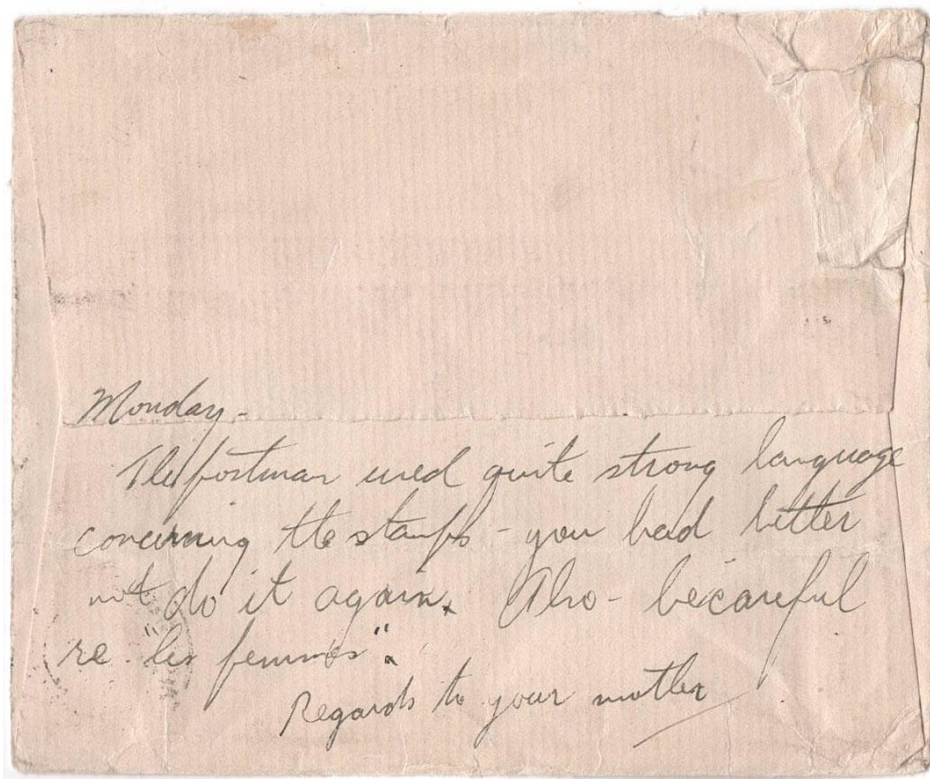 Monday -
The postman used quite strong language
concerning the stamps - you had better
not do it again. Also - be careful
re. les femmes".
Regards to your mother